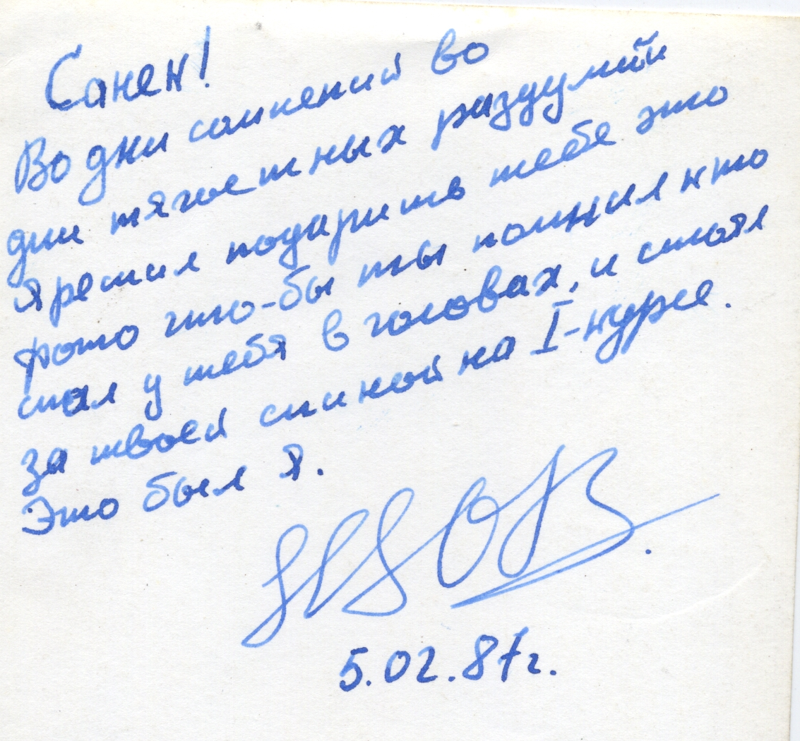 Санен!
Во дни сомнений во
дни тягостных раздумий
Я решил подарить тебе это
фото что-бы ты помнил кто
спал у тебя в головах, и стоял
за твоей спиной на I-курсе.
Это был Я.
5.02.87г.